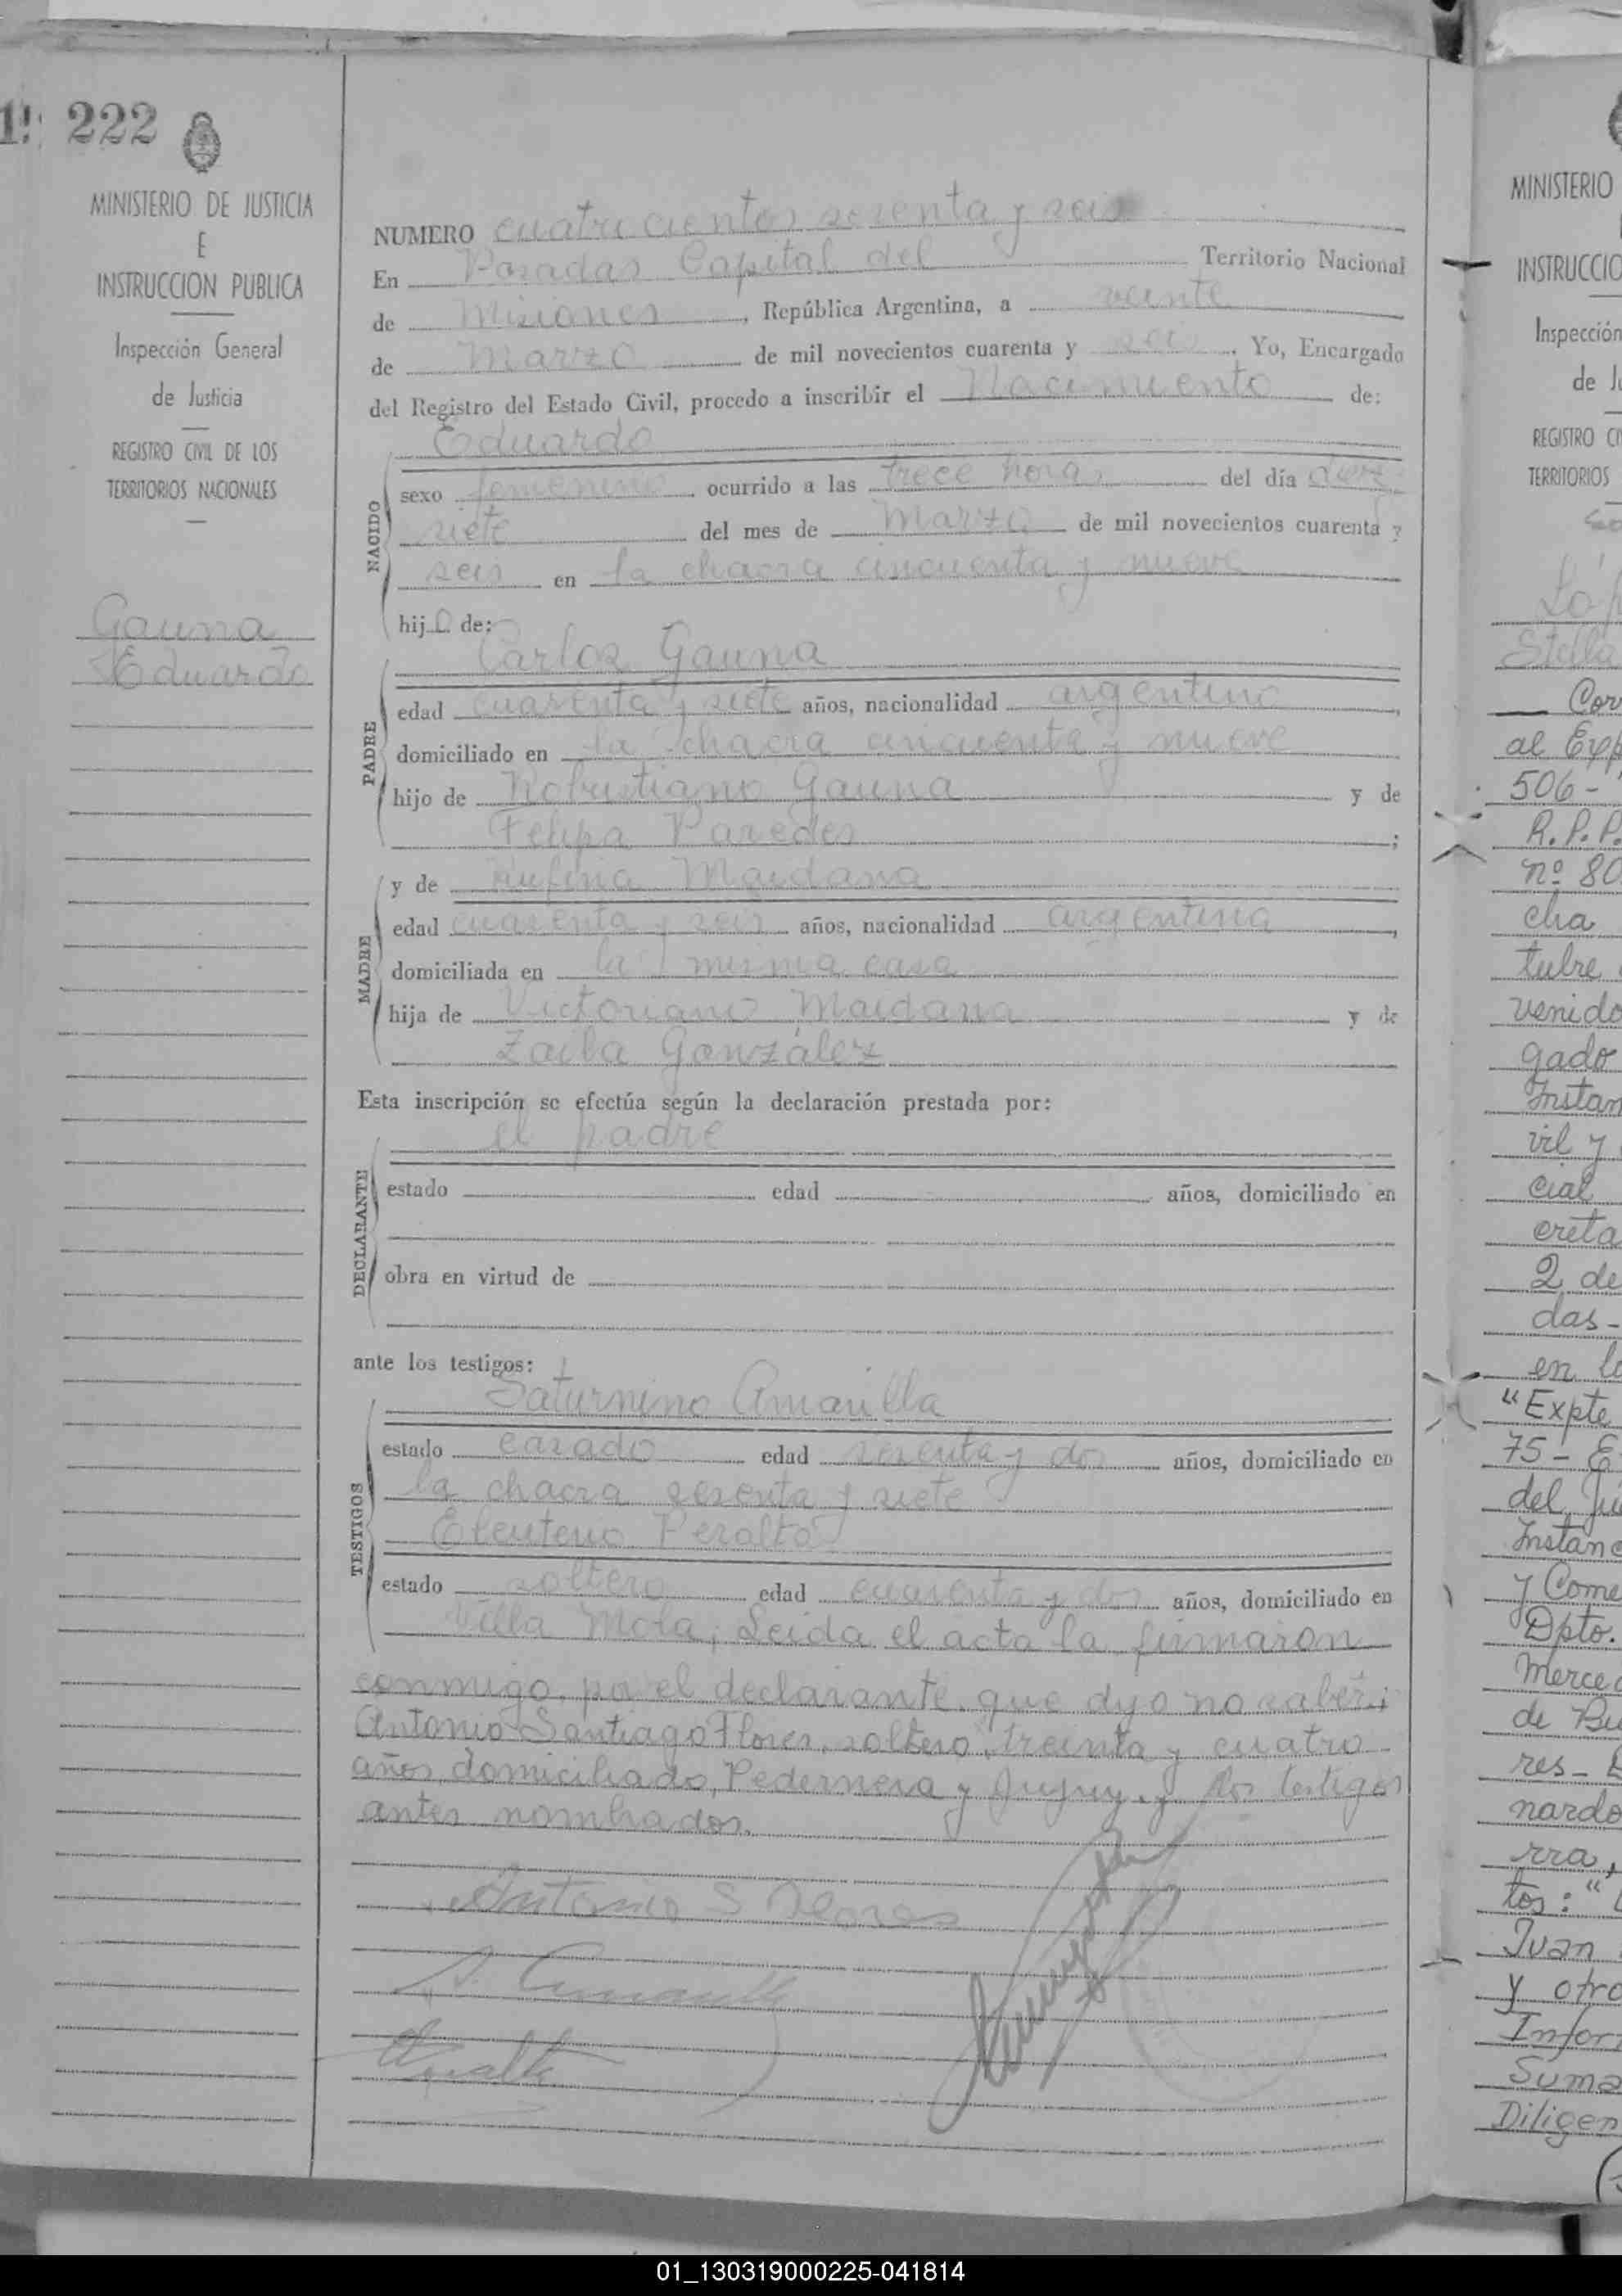 222
MINISTERIO DE JUSTICIA
E
INSTRUCCION PUBLICA
Inspección General
de Justicia
REGISTRO CIVIL DE LOS
TERRITORIOS NACIONALES
Gauna
Eduardo
NUMERO cuatrocientos sesenta y seis
En Posadas Capital del Territorio Nacional
de Misiones, República Argentina, a veinte
de Marzo de mil novecientos cuarenta y seis. Yo, Encargado
del Registro del Estado Civil, procedo a inscribir el Nacimiento de:
Eduardo
NACIDO
sexo femenino ocurrido a las trece horas del día diez
siete del mes de Marzo de mil novecientos cuarenta y
seis en la chacra cincuenta y nueve
hijo de:
Carlos Gauna
PADRE
edad cuarenta y siete años, nacionalidad argentino,
domiciliado en la chacra cincuenta y nueve
hijo de Robustiano Gauna y de
Felipa Paredes;
MADRE
y de Rufina Maidana
edad cuarenta y seis años, nacionalidad argentina,
domiciliada en la misma casa
hija de Victoriano Maidana y de
Zoila González
Esta inscripción se efectúa según la declaración prestada por:
el padre
DECLARANTE
estado edad años, domiciliado en
obra en virtud de
ante los testigos:
Saturnino Amarilla
TESTIGOS
estado casado edad sesenta y dos años, domiciliado en
la chacra sesenta y siete
Eleuterio Peralta
estado soltero edad cuarenta y dos años, domiciliado en
Villa Mola; Leída el acta la firmaron
conmigo, por el declarante que dijo no saber;
Antonio Santiago Flores, soltero, treinta y cuatro
años, domiciliado, Pedernera y Jujuy, y los testigos
antes nombrados.
Antonio S Flores
S. Amarilla
Peralta
MINISTERIO
INSTRUCCIO
Inspección
de Ju
REGISTRO CI
TERRITORIOS
Stella
Cor
al Exp
506-
R.P.P.
nº 80
cha
tubre
venido
gado
Instan
vil y
cial
creta
2 de
das-
en la
"Expte
75- E
del Ju
Instanc
y Come
Dpto.
Merced
de Bu
res- B
nardo
rra,
tos: "
Juan
y otro
Infor
Suma
Diligen
01_130319000225-041814